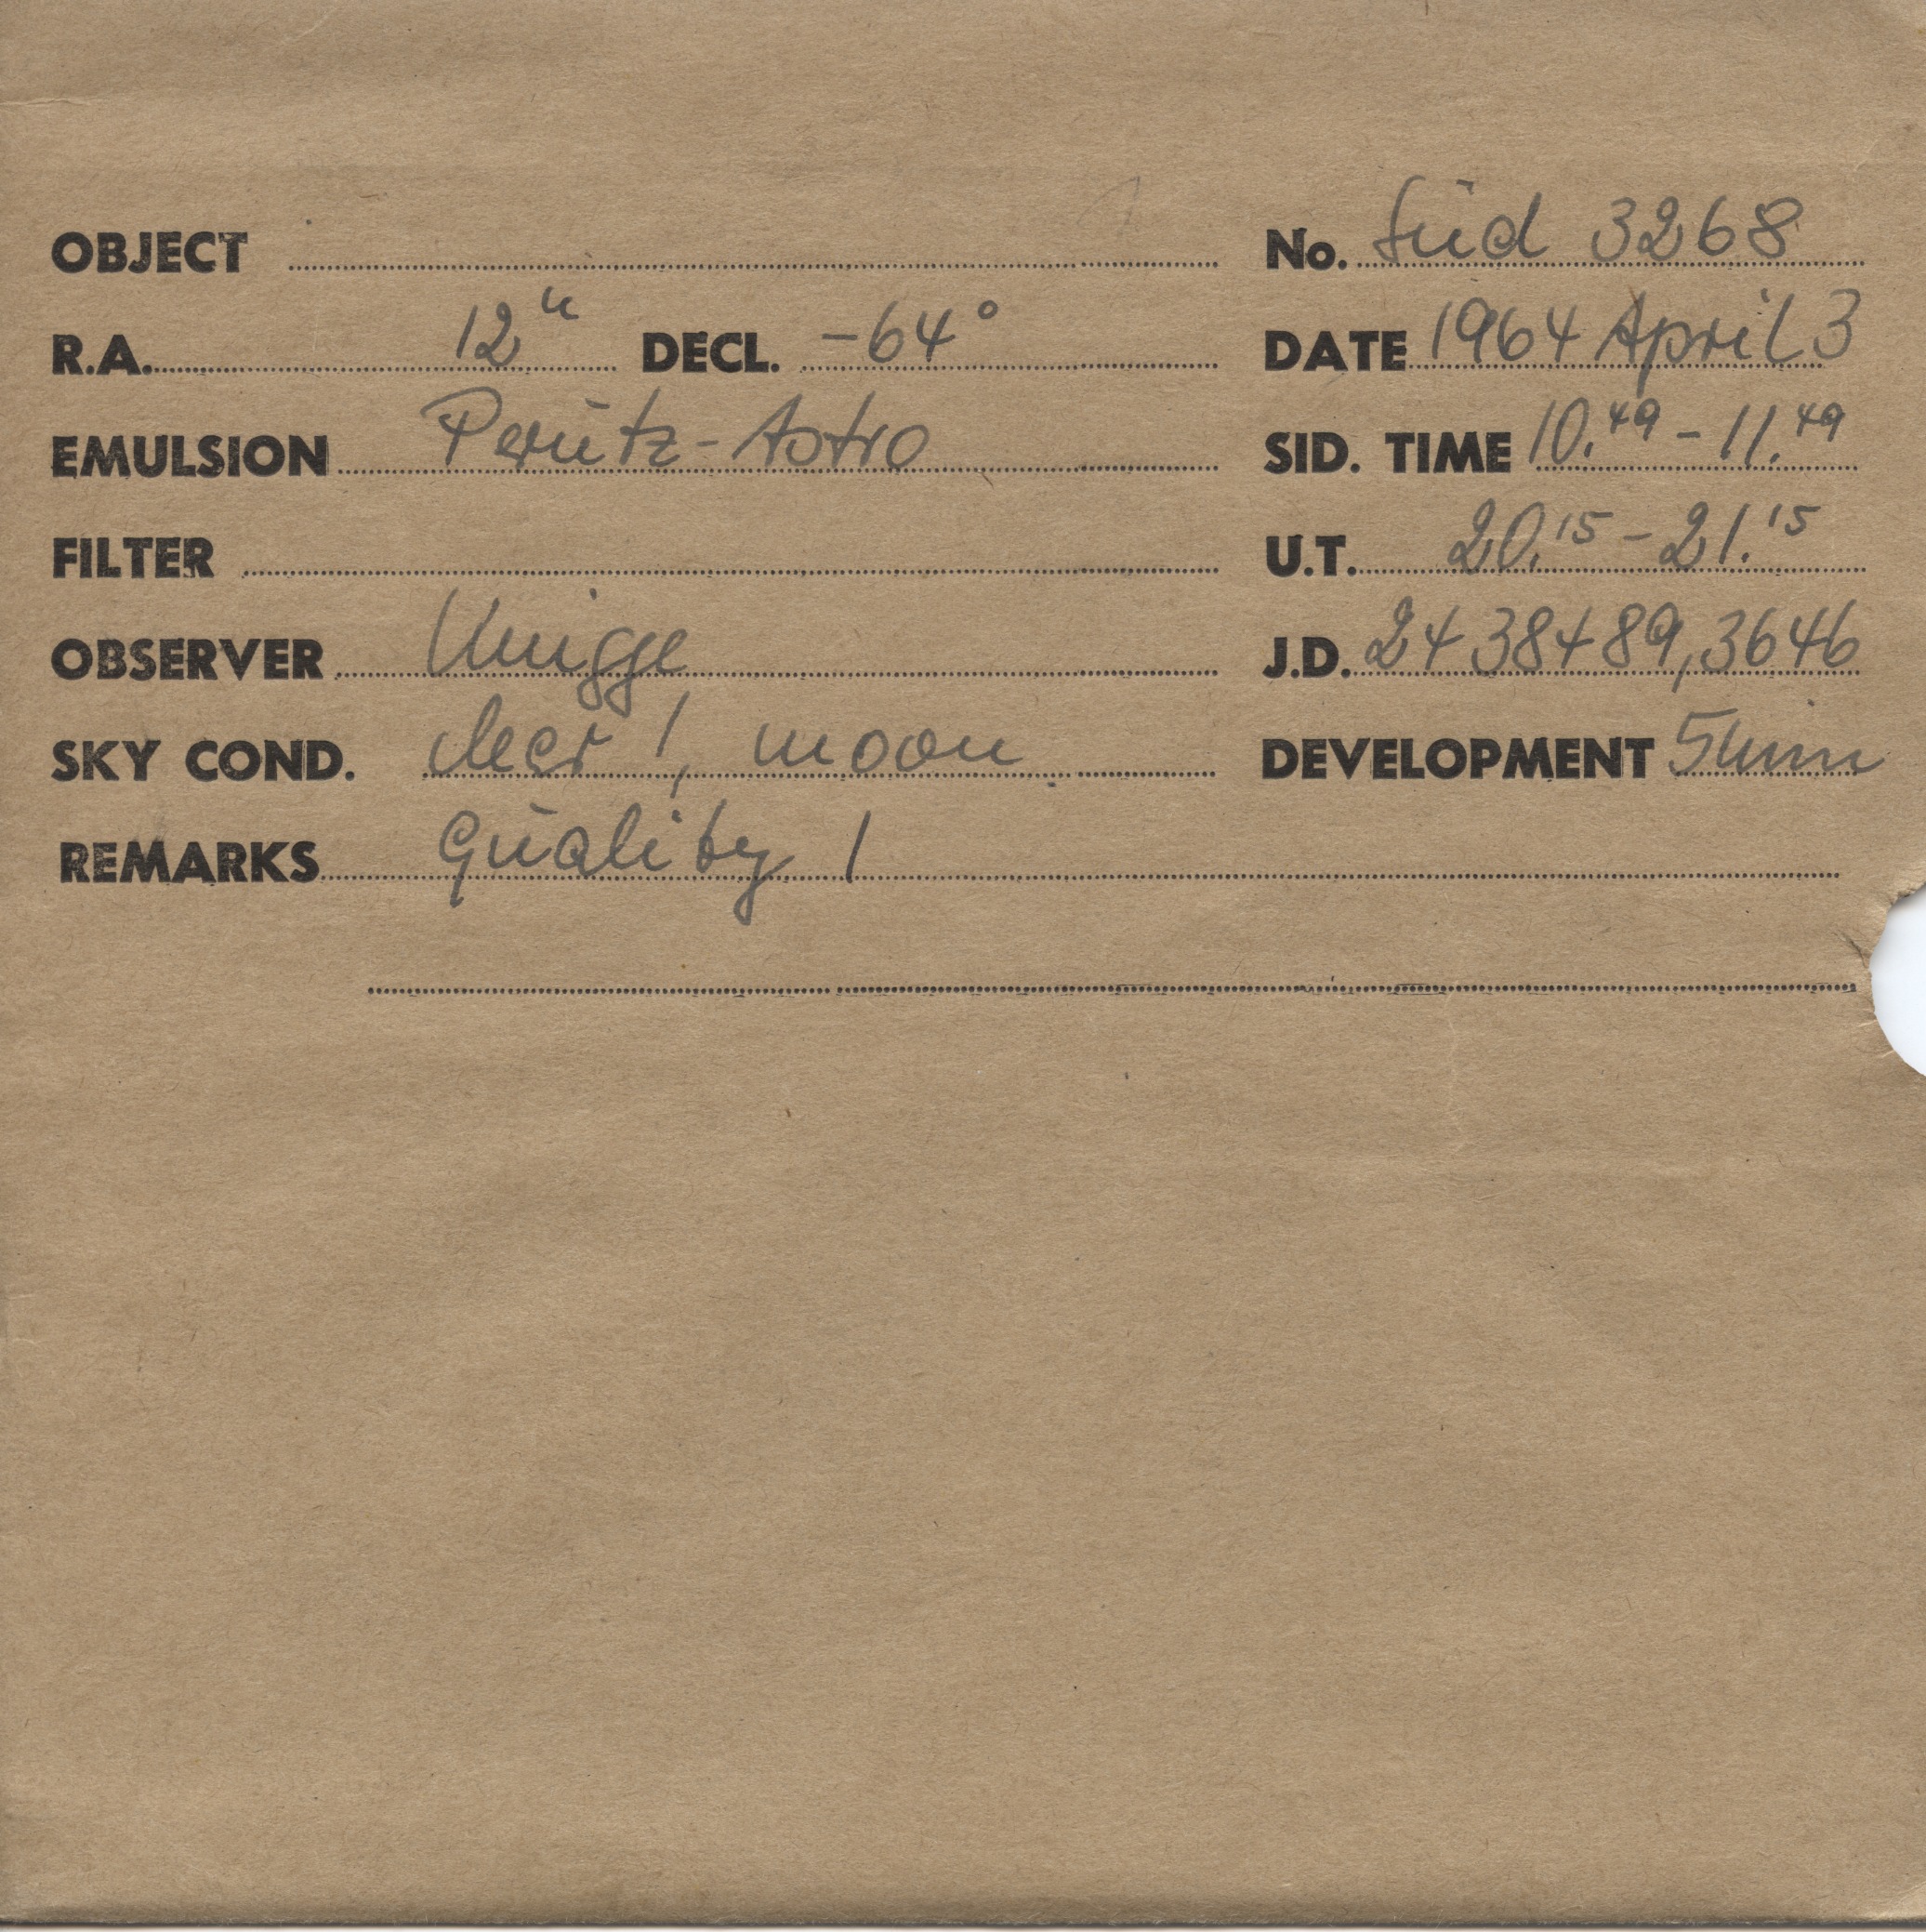 OBJECT No. Süd 3268
R.A. 12h DECL. -64° DATE 1964 April 3
EMULSION Perutz-Astro SID. TIME 10.49 - 11.49
FILTER U.T. 20.15 - 21.15
OBSERVER Knigge J.D. 2438489,3646
SKY COND. clear !, moon DEVELOPMENT 5 min
REMARKS Quality 1